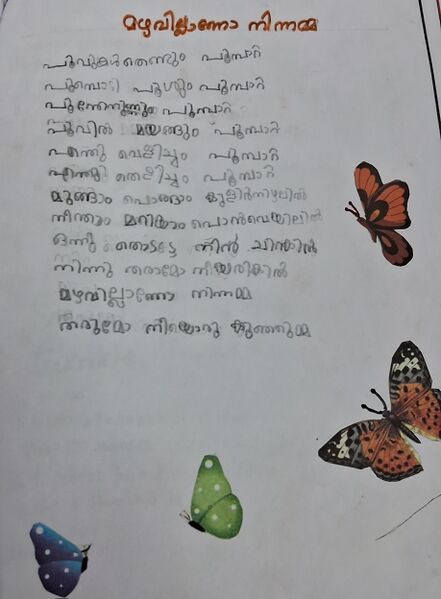 മഴവില്ലാണോ നിന്നമ്മ
പൂവുകൾതെണ്ടും പൂമ്പാറ്റ
പൂമ്പൊടി പൂശും പൂമ്പാറ്റ
പൂന്തേനുണ്ണും പൂമ്പാറ്റ
പൂവിൽ മയങ്ങും പൂമ്പാറ്റ
എന്തു വെളിച്ചം പൂമ്പാറ്റ
എന്തു തെളിച്ചം പൂമ്പാറ്റ
മുങ്ങാം പൊങ്ങാം കുളിർനിഴലിൽ
നീന്താം മറിയാം പൊൻവെയിലിൽ
ഒന്നു തൊടട്ടേ നിൻ ചിറകിൽ
നിന്നു തരാമോ നീയരികിൽ
മഴവില്ലാണോ നിന്നമ്മ
തരുമോ നീയൊരു കുഞ്ഞുമ്മ